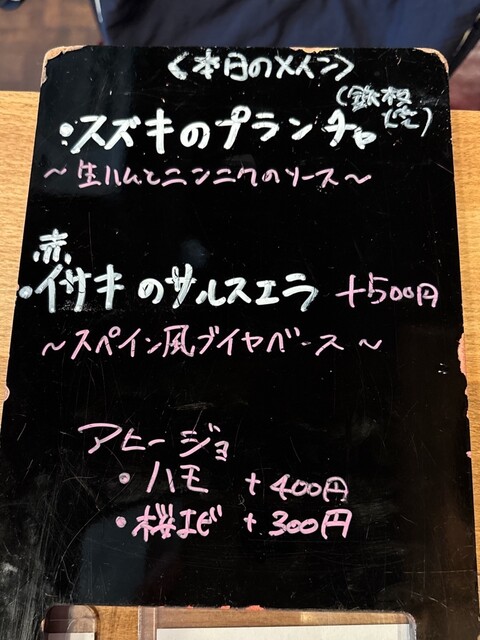 〈本日のメイン〉
・スズキのプランチャ(鉄板焼)
~生ハムとニンニクのソース~
赤
・イサキのサルスエラ +500円
~スペイン風ブイヤベース~
アヒージョ
・ハモ +400円
・桜エビ +300円